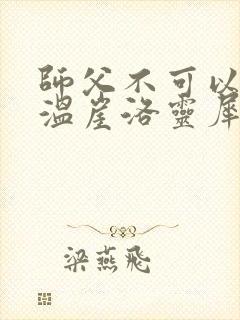 師父不可以
溫崖洛靈犀
梁燕飛